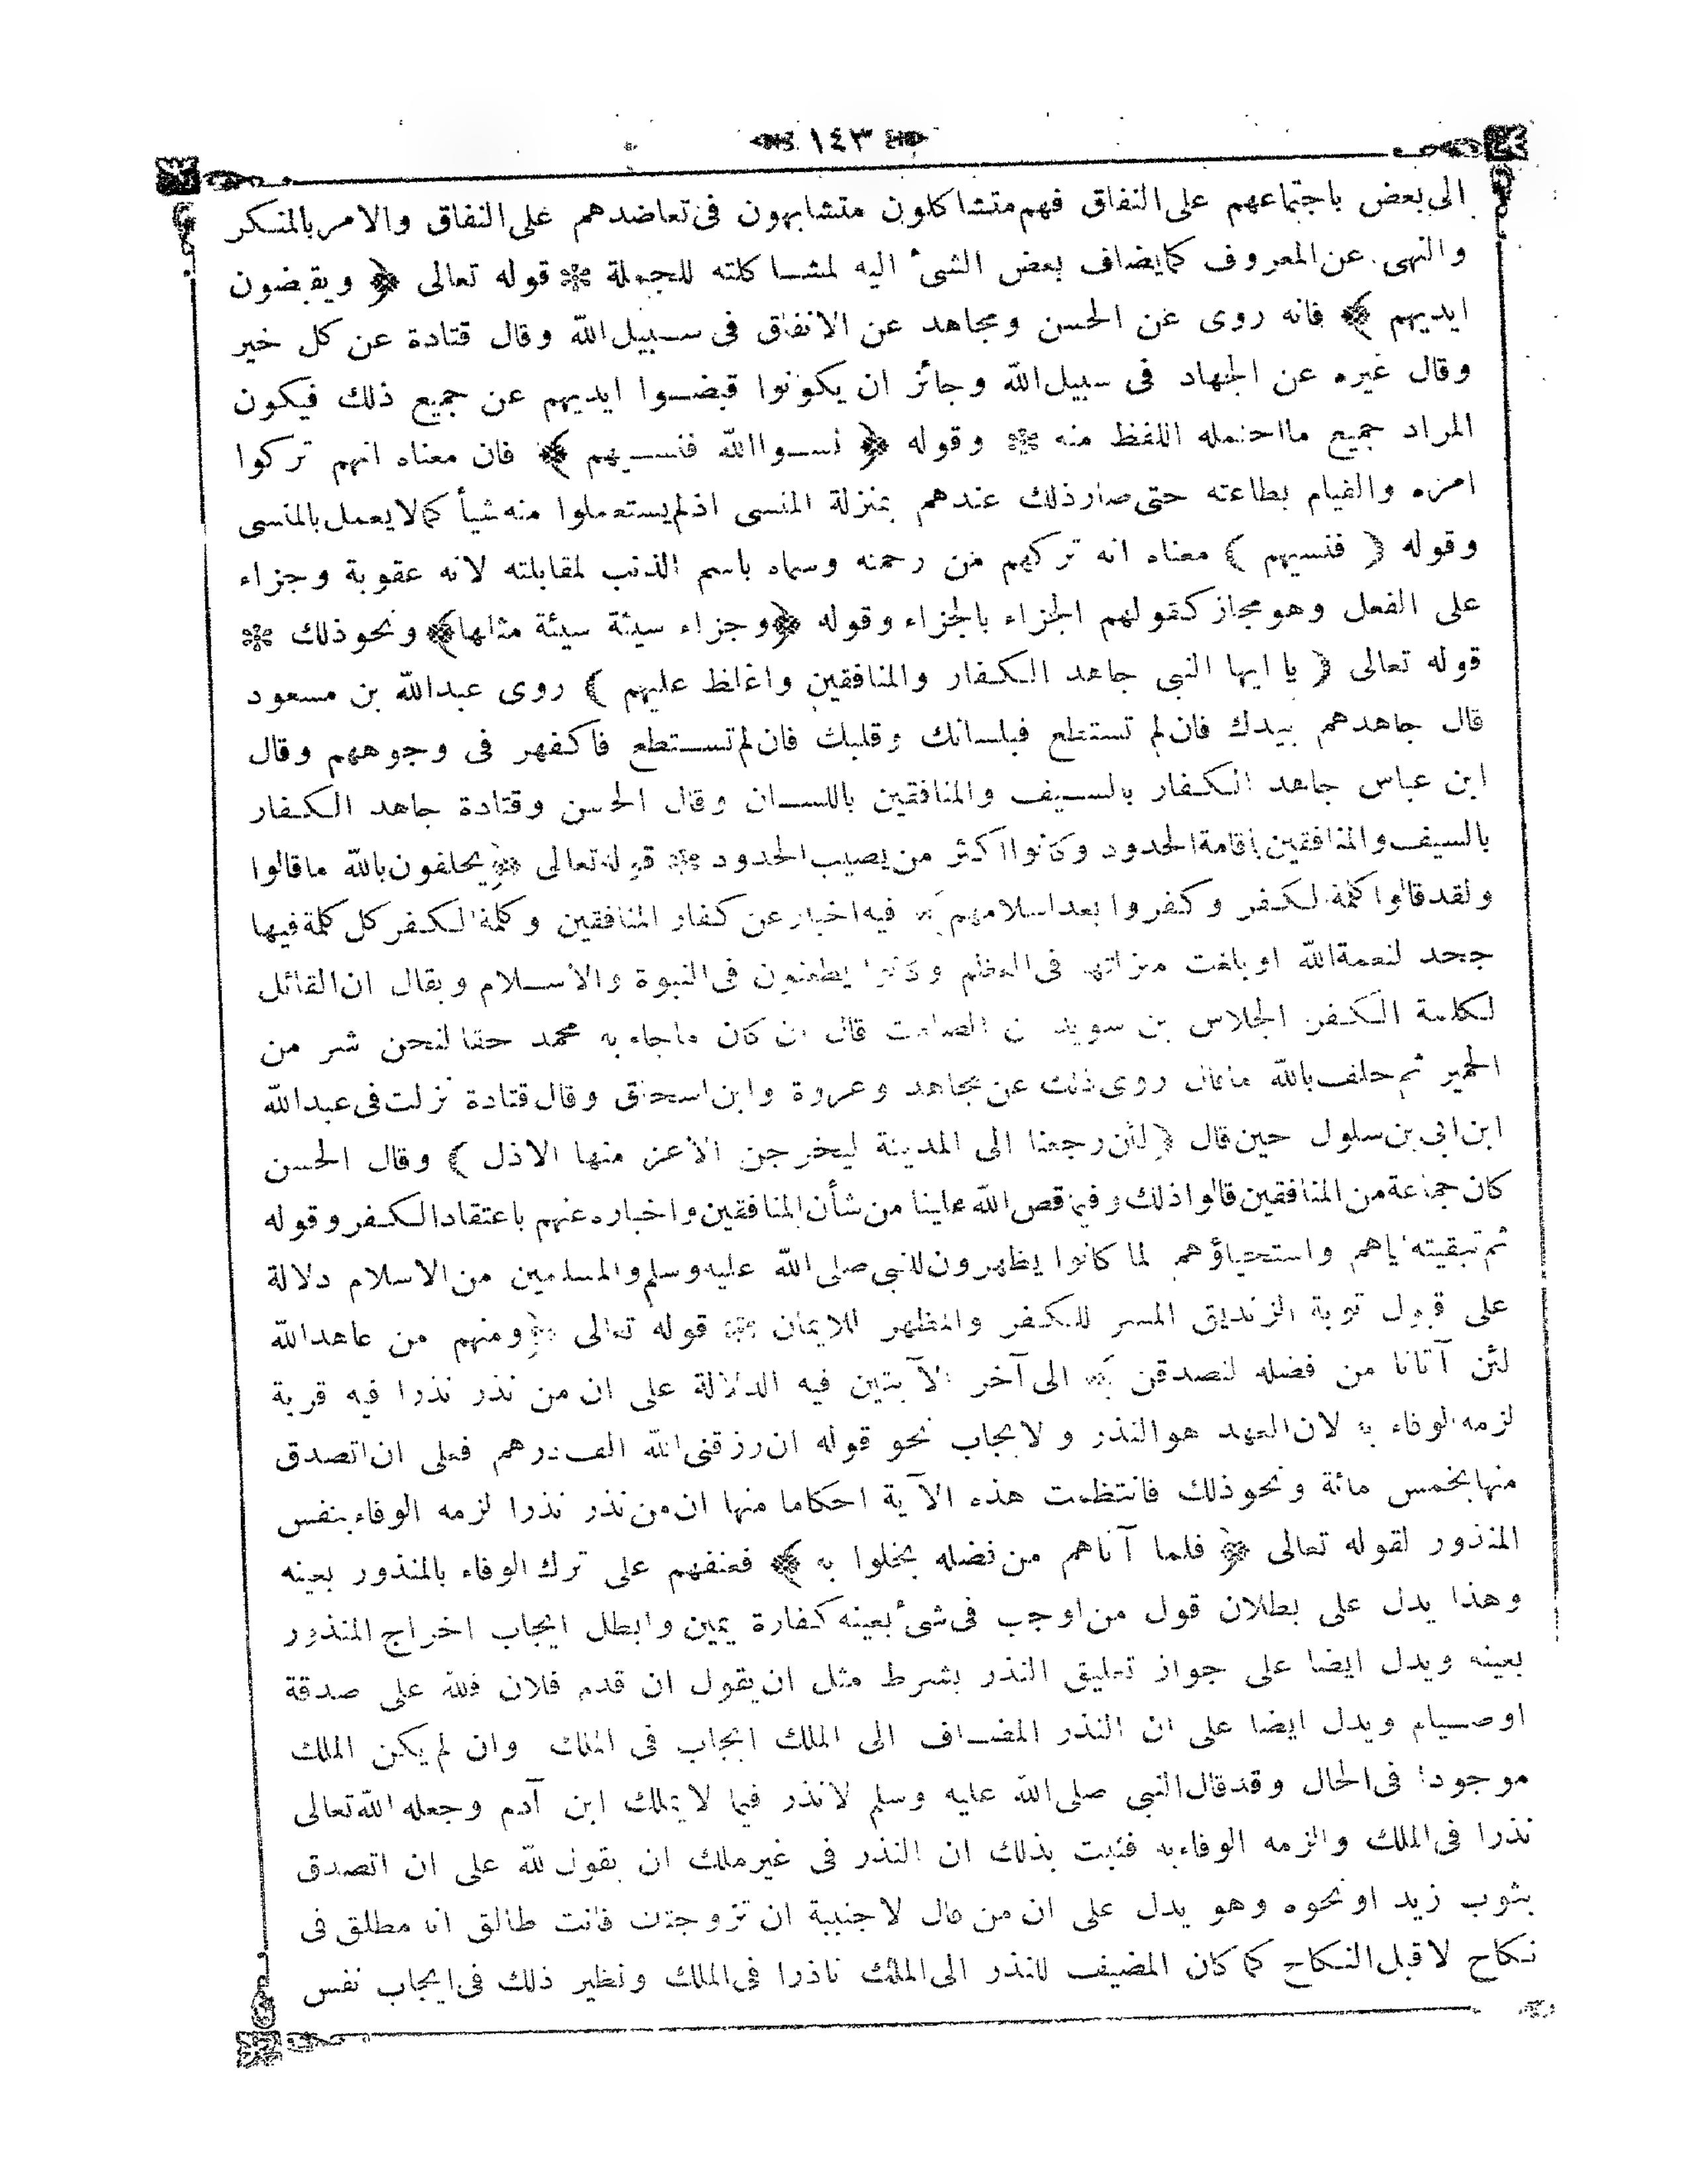 ١٤٣
الى بعض باجتماعهم على النفاق فهم متشاكلون متشابهون فى تعاضدهم على النفاق والامر بالمنكر
والنهى عن المعروف كما يضاف بعض الشىء اليه لمشاكلته للجملة * قوله تعالى ﴿ ويقبضون
ايديهم ﴾ فانه روى عن الحسن ومجاهد عن الانفاق فى سبيل الله وقال قتادة عن كل خير
وقال غيره عن الجهاد فى سبيل الله وجائز ان يكونوا قبضوا ايديهم عن جميع ذلك فيكون
المراد جميع ما احتمله اللفظ منه * وقوله ﴿ نسوا الله فنسيهم ﴾ فان معناه انهم تركوا
امره والقيام بطاعته حتى صار ذلك عندهم بمنزلة المنسى اذ لم يستعملوا منه شيأ كما لا يعمل بالمنسى
وقوله ( فنسيهم ) معناه انه تركهم من رحمته وسماه باسم الذنب لمقابلته لانه عقوبة وجزاء
على الفعل وهو مجاز كقولهم الجزاء بالجزاء وقوله ﴿وجزاء سيئة سيئة مثلها﴾ ونحو ذلك *
قوله تعالى ( يا ايها النبى جاهد الكفار والمنافقين واغلظ عليهم ) روى عبدالله بن مسعود
قال جاهدهم بيدك فان لم تستطع فبلسانك وقلبك فان لم تستطع فاكفهر فى وجوههم وقال
ابن عباس جاهد الكفار بالسيف والمنافقين باللسان وقال الحسن وقتادة جاهد الكفار
بالسيف والمنافقين باقامة الحدود وكانوا اكثر من يصيب الحدود * قوله تعالى ﴿يحلفون بالله ما قالوا
ولقد قالوا كلمة الكفر وكفروا بعد اسلامهم ﴾ فيه اخبار عن كفار المنافقين وكلمة الكفر كل كلمة فيها
جحد لنعمة الله او بلغت منزلتها فى العظم وكانوا يطعنون فى النبوة والاسلام ويقال ان القائل
لكلمة الكفر الجلاس بن سويد بن الصامت قال ان كان ماجاء به محمد حقا لنحن شر من
الحمير ثم حلف بالله ماقال روى ذلك عن مجاهد وعروة وابن اسحاق وقال قتادة نزلت فى عبدالله
ابن ابى بن سلول حين قال ( لئن رجعنا الى المدينة ليخرجن الاعز منها الاذل ) وقال الحسن
كان جماعة من المنافقين قالوا ذلك وفيما قص الله علينا من شأن المنافقين واخباره عنهم باعتقاد الكفر وقوله
ثم تبقيته اياهم واستحياؤهم لما كانوا يظهرون للنبى صلى الله عليه وسلم والمسلمين من الاسلام دلالة
على قبول توبة الزنديق المسر للكفر والمظهر للايمان * قوله تعالى ﴿ومنهم من عاهد الله
لئن آتانا من فضله لنصدقن ﴾ الى آخر الآيتين فيه الدلالة على ان من نذر نذرا فيه قربة
لزمه الوفاء به لان العهد هو النذر والايجاب نحو قوله ان رزقنى الله الف درهم فعلى ان اتصدق
منها بخمس مائة ونحو ذلك فانتظمت هذه الآية احكاما منها ان من نذر نذرا لزمه الوفاء بنفس
المنذور لقوله تعالى ﴿ فلما آتاهم من فضله بخلوا به ﴾ فعنفهم على ترك الوفاء بالمنذور بعينه
وهذا يدل على بطلان قول من اوجب فى شىء بعينه كفارة يمين وابطل ايجاب اخراج المنذور
بعينه ويدل ايضا على جواز تعليق النذر بشرط مثل ان يقول ان قدم فلان فلله على صدقة
او صيام ويدل ايضا على ان النذر المضاف الى الملك ايجاب فى الملك وان لم يكن الملك
موجودا فى الحال وقد قال النبى صلى الله عليه وسلم لا نذر فيما لا يملك ابن آدم وجعله الله تعالى
نذرا فى الملك والزمه الوفاء به فثبت بذلك ان النذر فى غير ملك ان يقول لله على ان اتصدق
بثوب زيد او نحوه وهو يدل على ان من قال لاجنبية ان تزوجتك فانت طالق انه مطلق فى
نكاح لا قبل النكاح كما كان المضيف للنذر الى الملك ناذرا فى الملك ونظير ذلك فى ايجاب نفس